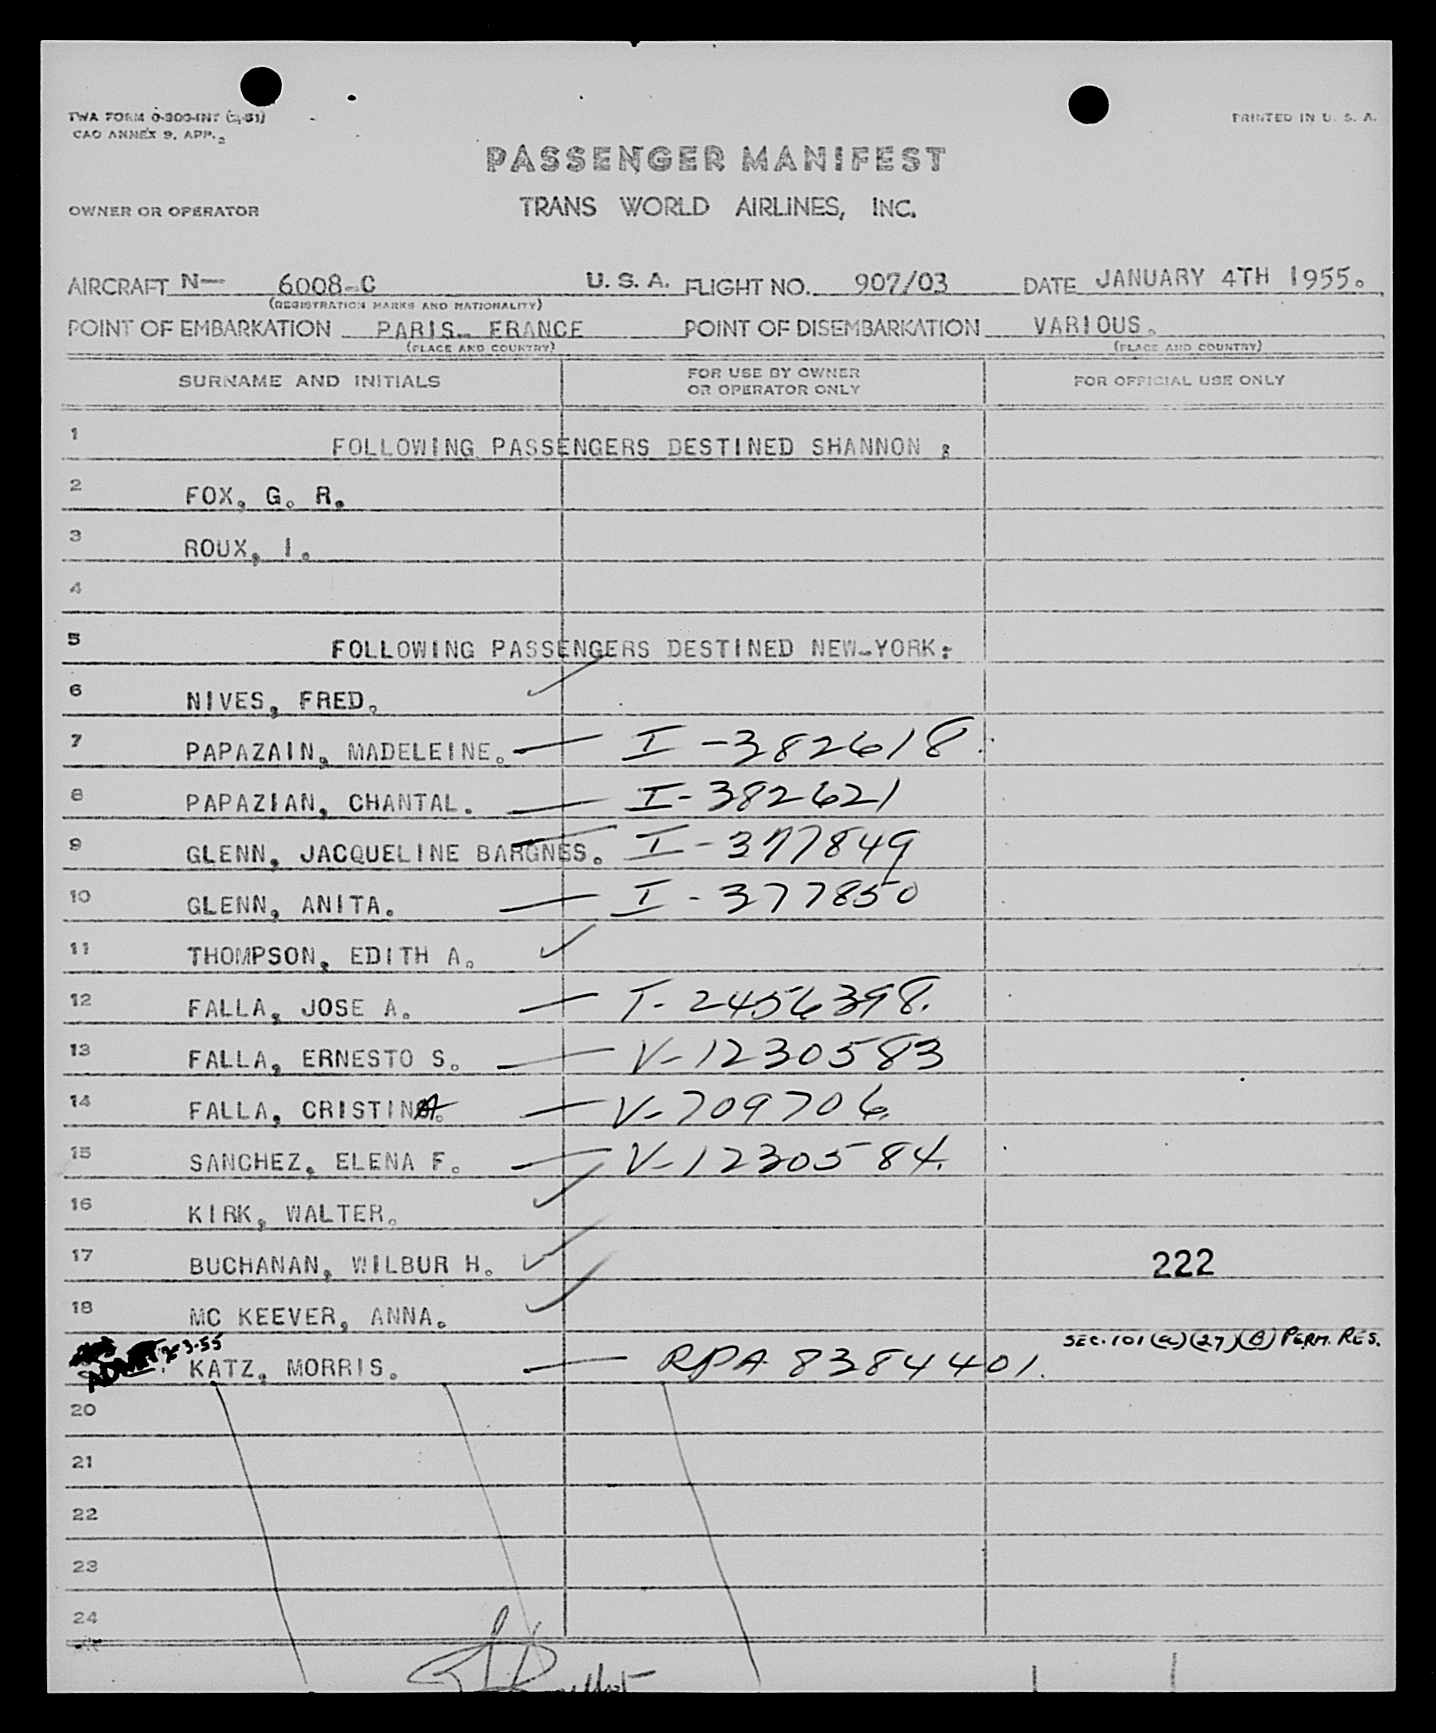 TWA FORM O-300-INT (2-51)
PRINTED IN U. S. A.
CAO ANNEX 9, APP. 2
PASSENGER MANIFEST
OWNER OR OPERATOR TRANS WORLD AIRLINES, INC.
AIRCRAFT N— 6008-C U. S. A. FLIGHT NO. 907/03 DATE JANUARY 4TH 1955.
(REGISTRATION MARKS AND NATIONALITY)
POINT OF EMBARKATION PARIS- FRANCE POINT OF DISEMBARKATION VARIOUS.
(PLACE AND COUNTRY) (PLACE AND COUNTRY)
SURNAME AND INITIALS FOR USE BY OWNER OR OPERATOR ONLY FOR OFFICIAL USE ONLY
1 FOLLOWING PASSENGERS DESTINED SHANNON :
2 FOX, G. R.
3 ROUX, I.
4
5 FOLLOWING PASSENGERS DESTINED NEW-YORK:
6 NIVES, FRED. ✓
7 PAPAZAIN, MADELEINE. — I-382618
8 PAPAZIAN, CHANTAL. — I-382621
9 GLENN, JACQUELINE BARGNES. — I-377849
10 GLENN, ANITA. — I-377850
11 THOMPSON, EDITH A. ✓
12 FALLA, JOSE A. — T-2456398.
13 FALLA, ERNESTO S. — V-1230583
14 FALLA, CRISTINA. — V-709706.
15 SANCHEZ, ELENA F. — V-1230584.
16 KIRK, WALTER. ✓
17 BUCHANAN, WILBUR H. ✓ 222
18 MC KEEVER, ANNA. ✓
SEC. 101(a)(27)(B) PERM. RES.
KATZ, MORRIS. — RPA 8384401.
20
21
22
23
24